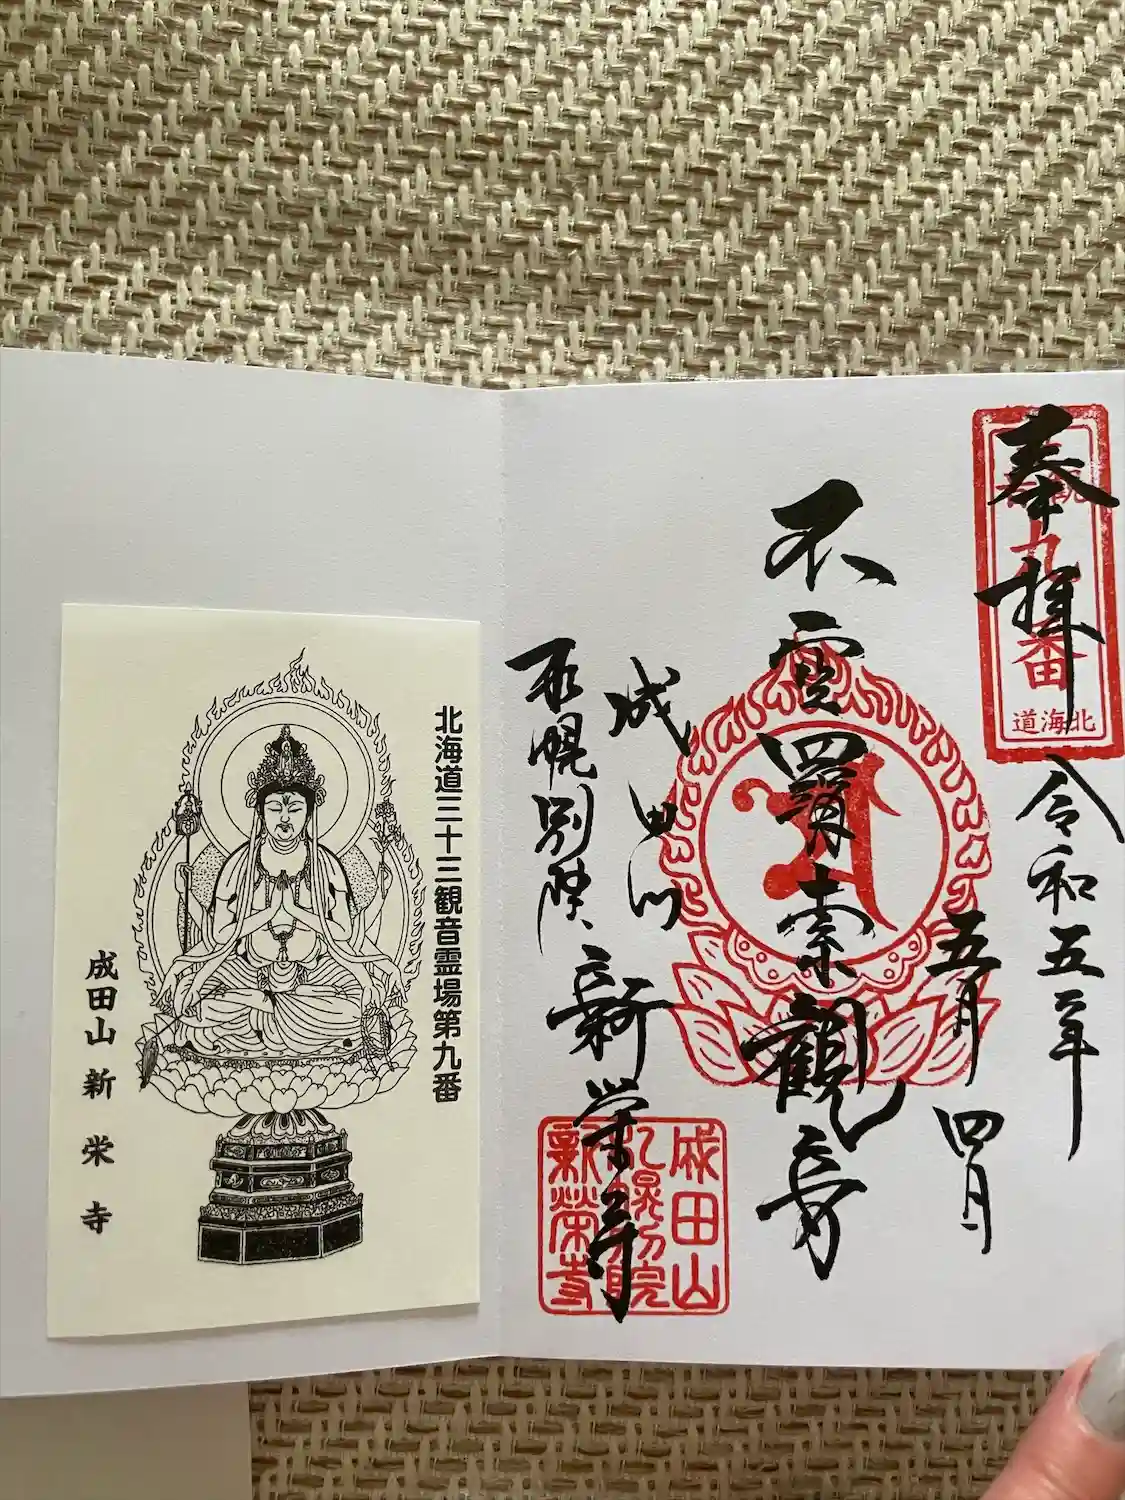 奉拝
観音
九番
北海道
令和五年
五月四日
不空羂索観音
成田山
札幌別院
新栄寺
成田山
札幌別院
新榮寺
北海道三十三観音霊場第九番
成田山 新栄寺